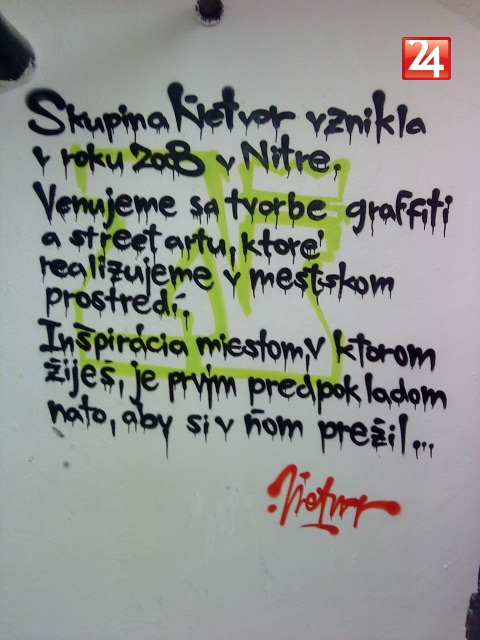 24
Skupina Netvor vznikla
v roku 2008 v Nitre.
Venujeme sa tvorbe graffiti
a street artu, ktoré
realizujeme v mestskom
prostredí.
Inšpirácia miestom, v ktorom
žiješ, je prvým predpokladom
nato, aby si v ňom prežil...
Netvor